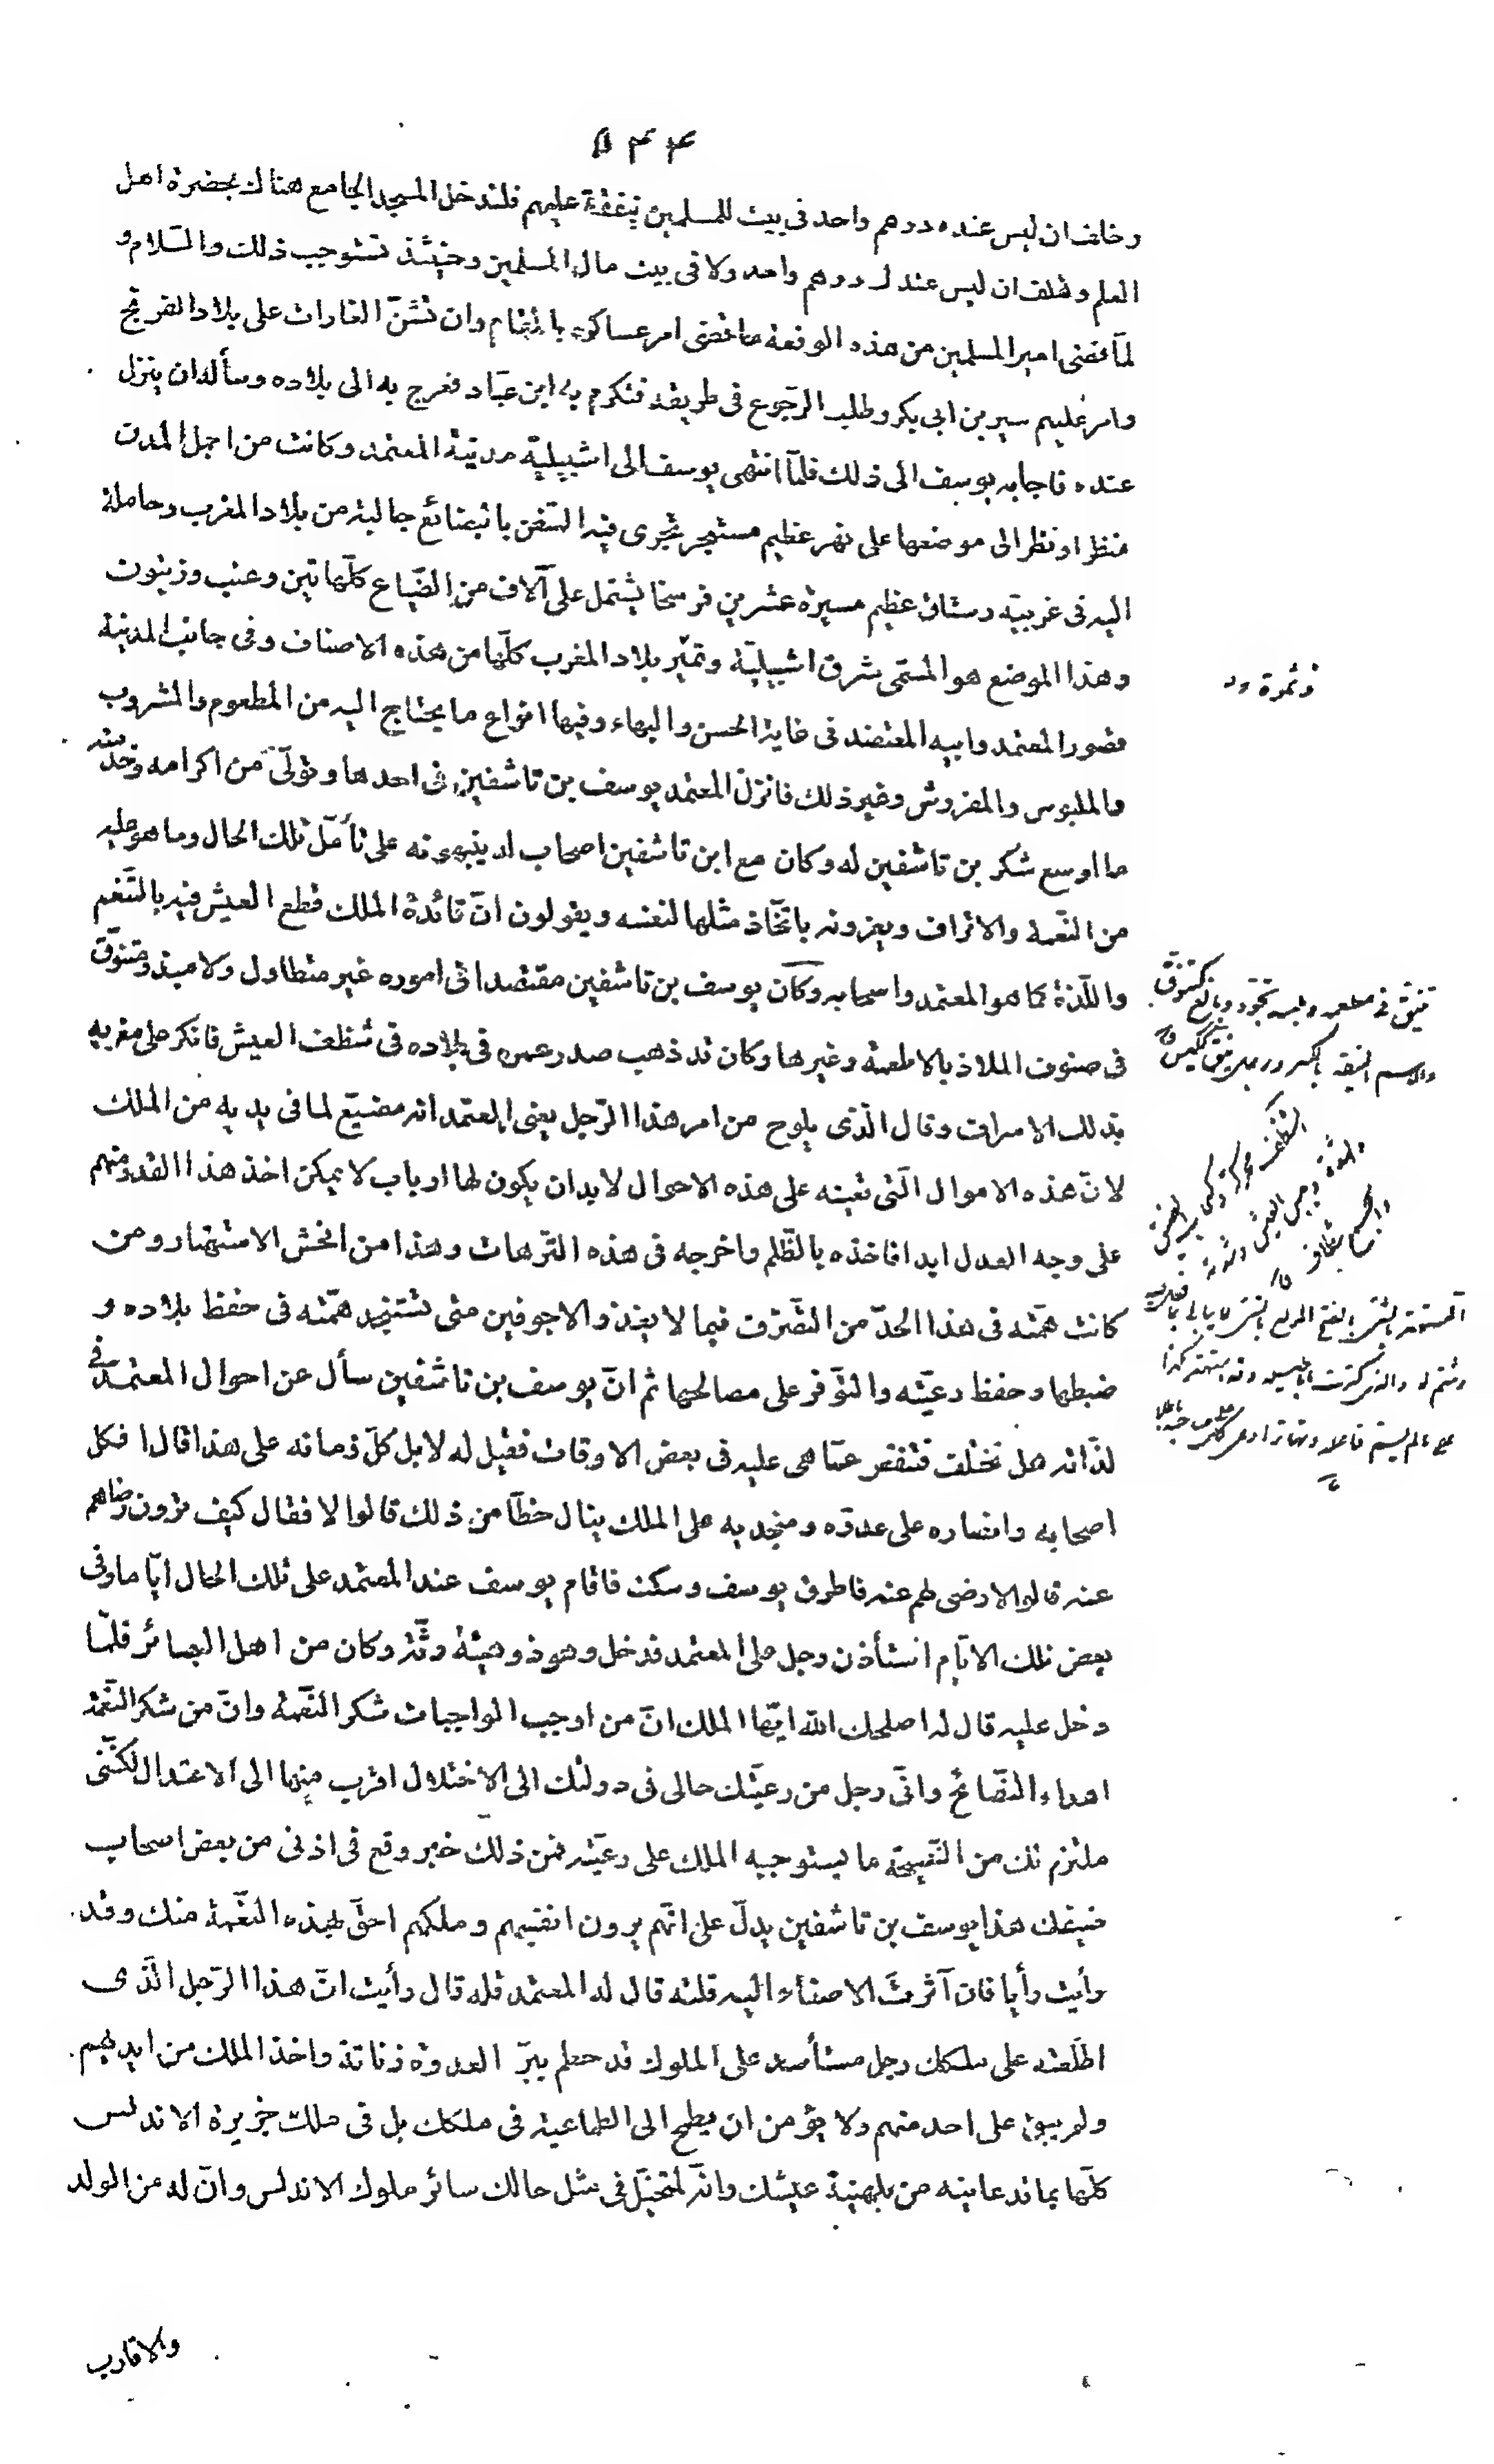 ٥٤٤
وحلف ان ليس عنده درهم واحد فى بيت للمسلمين ينفقه عليهم فلتدخل المسجد الجامع هناك بحضرة اهل
العلم وتحلف ان ليس عندك درهم واحد ولا فى بيت مال المسلمين وحينئذ تستوجب ذلك والسلام و
لما قضى امير المسلمين من هذه الوقعة ما قضى امر عساكره بالمقام وان تشنّ الغارات على بلاد الفرنج
وامر عليهم سير بن ابى بكر وطلب الرجوع فى طريقه فتكرم به ابن عبّاد فعرج به الى بلاده وسأله ان ينزل
عنده فاجابه يوسف الى ذلك فلمّا انتهى يوسف الى اشبيلية مدينة المعتمد وكانت من اجمل المدن
منظرا ونظر الى موضعها على نهر عظيم مستبحر تجرى فيه السفن بالبضائع جالبة من بلاد المغرب وحاملة
اليه فى غربيّه رستاق عظيم مسيرة عشرين فرسخا يشتمل على آلاف من الضّياع كلّها تين وعنب وزيتون
وهذا الموضع هو المسمّى شرف اشبيليّة وتمير بلاد المغرب كلّها من هذه الاصناف وفى جانب المدينة
قصور المعتمد وابيه المعتضد فى غاية الحسن والبهاء وفيها انواع ما يحتاج اليه من المطعوم والمشروب
والملبوس والمفروش وغير ذلك فانزل المعتمد يوسف بن تاشفين فى احدها وتولّى من اكرامه وخدمته
ما اوسع شكر بن تاشفين له وكان مع ابن تاشفين اصحاب له ينبهونه على تأمّل تلك الحال وما هو عليه
من النّعمة والاتراف ويغرونه باتّخاذ مثلها لنفسه ويقولون انّ فائدة الملك قطع العيش فيه بالتّنعم
واللّذة كما هو المعتمد واصحابه وكان يوسف بن تاشفين مقتصدا فى اموره غير متطاول ولا مبذر ومتنوّق
فى صنوف الملاذ بالاطعمة وغيرها وكان قد ذهب صدر عمره فى بلاده فى شظف العيش فانكر على مغريه
بذلك الاسراف وقال الّذى يلوح من امر هذا الرّجل يعنى المعتمد انه مضيّع لما فى يديه من الملك
لانّ هذه الاموال الّتى تعينه على هذه الاحوال لا بدان يكون لها ارباب لا يمكن اخذ هذا القدر منهم
على وجه العدل ابدا فاخذه بالظّلم واخرجه فى هذه التّرهات وهذا من افحش الاستهتار ومن
كانت همّته فى هذا الحدّ من التّصّرف فيما لا يغذو الاجوفين متى تستنجد همّته فى حفظ بلاده و
ضبطها وحفظ رعيّته والتوّفر على مصالحها ثم انّ يوسف بن تاشفين سأل عن احوال المعتمد فى
لذّاته هل تختلف فتنقص عمّا هى عليه فى بعض الاوقات فقيل له لا بل كلّ زمانه على هذا قال افكل
اصحابه وانصاره على عدوّه ومنجديه على الملك ينال حظّا من ذلك قالوا لا فقال كيف ترون رضاهم
عنه قالوا لا رضى لهم عنه فاطرق يوسف وسكت فاقام يوسف عند المعتمد على تلك الحال ايّاما وفى
بعض تلك الايّام استأذن رجل على المعتمد فدخل وهو ذو هيئة رثّة وكان من اهل البصائر فلمّا
دخل عليه قال له اصلحك الله ايّها الملك انّ من اوجب الواجبات شكر النّعمة وانّ من شكر النّعمة
اهداء النّصائح وانّى رجل من رعيّتك حالى فى دولتك الى الاختلال اقرب منها الى الاعتدال لكنّنى
ملتزم لك من النّصيحة ما يستوجبه الملك على رعيّته فمن ذلك خبر وقع فى اذنى من بعض اصحاب
ضيفك هذا يوسف بن تاشفين يدلّ على انّهم يرون انفسهم وملكهم احقّ بهذه النّعمة منك وقد
رأيت رأيا فان آثرت الاصغاء اليه قلته قال له المعتمد قله قال رأيت انّ هذا الرّجل الّذى
اطلعته على ملكك رجل مستأسد على الملوك قد حطم ببرّ العدوة زناتة واخذ الملك من ايديهم
ولم يبق على احد منهم ولا يؤمن ان يطمح الى الطماعية فى ملكك بل فى ملك جزيرة الاندلس
كلّها بما قد عاينه من بلهنية عيشك وانّه لمتخيّل فى مثل حالك سائر ملوك الاندلس وانّ له من الولد
والاقارب